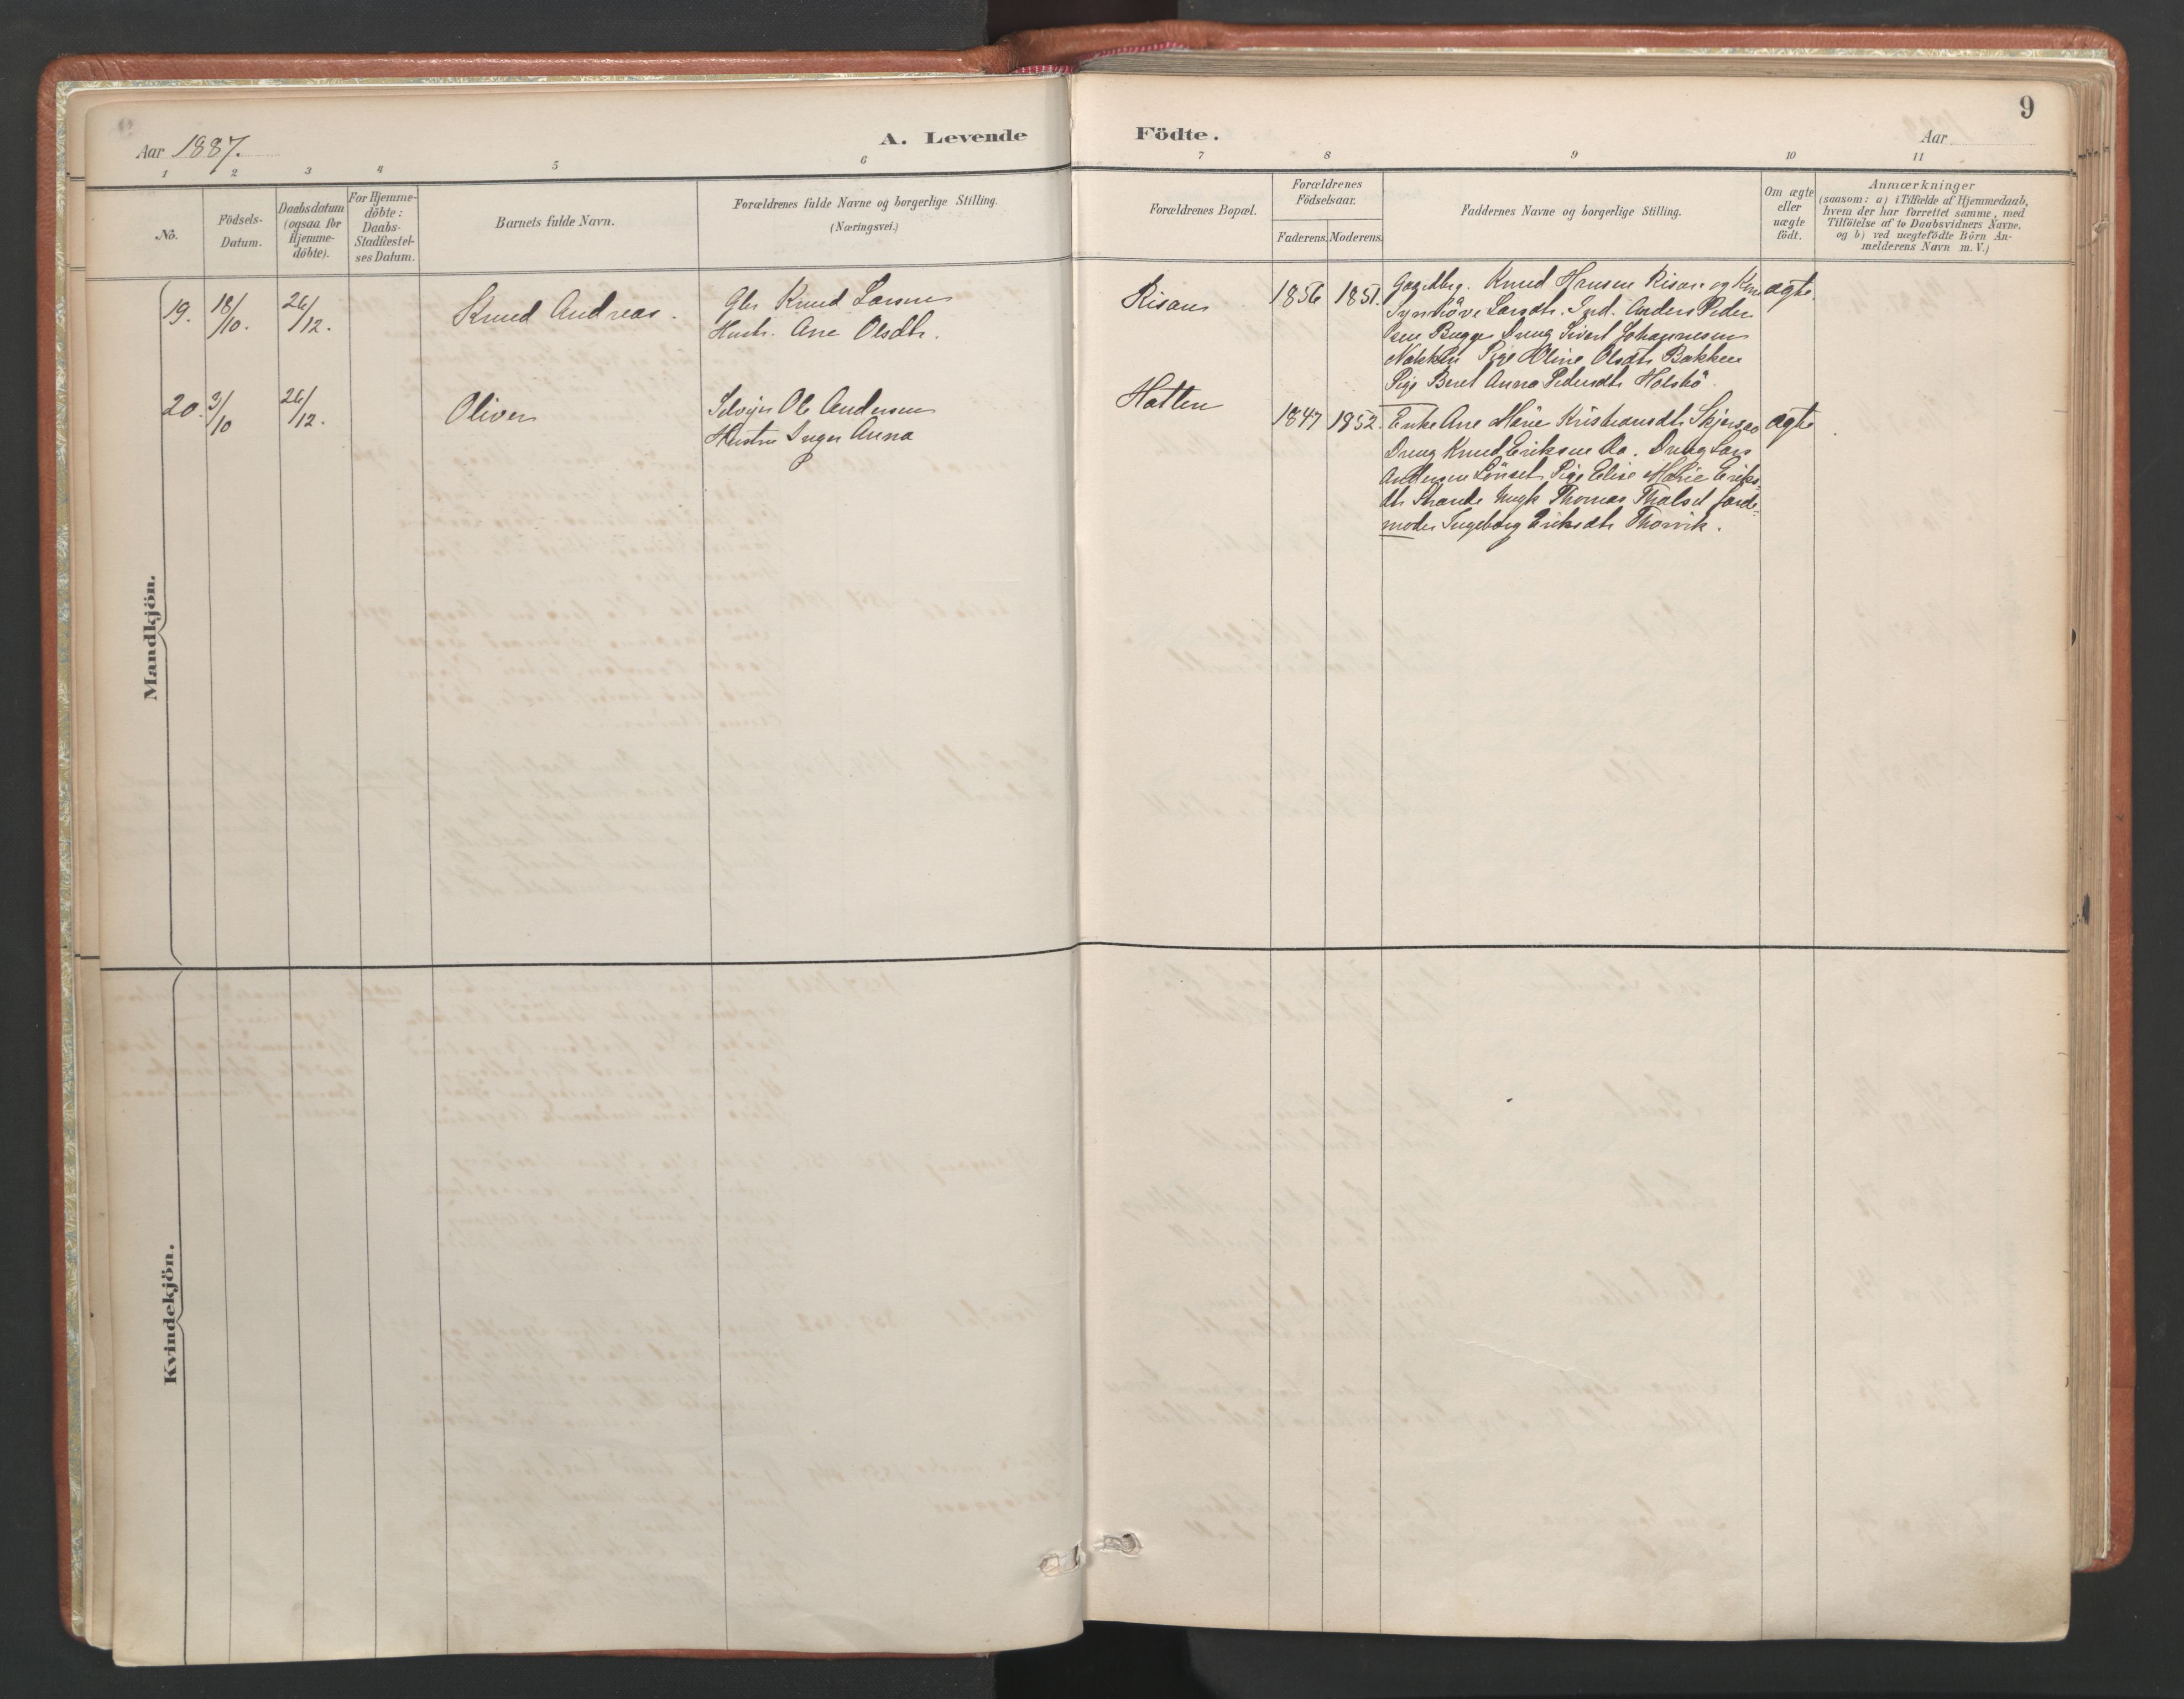 9
Aar 1887.
A. Levende Födte.
Aar
1 2 3 4 5 6 7 8 9 10 11
No.
Födsels-
Datum.
Daabsdatum
(ogsaa for
Hjemme-
döbte).
For Hjemme-
döbte:
Daabs-
Stadfæstel-
ses Datum.
Barnets fulde Navn.
Forældrenes fulde Navne og borgerlige Stilling.
(Næringsvei.)
Forældrenes Bopæl.
Forældrenes
Födselsaar.
Faderens. Moderens.
Faddernes Navne og borgerlige Stilling.
Om ægte
eller
uægte
födt.
Anmærkninger
(saasom: a) i Tilfælde af Hjemmedaab,
hvem der har forrettet samme, med
Tilföielse af to Daabsvidners Navne.
og b) ved uægtefödte Börn An-
melderens Navn m. V.)
Mandkjön.
19. 18/10. 26/12.
Knud Andreas.
Gbr Knud Larsen
Hustr. Ane Olsdtr.
Risan
1856 1851.
Gaardbrg. Knud Hansen Risan og Kone
Synnöve Larsdtr. Ind. Anders Peder
sen Bugge Dreng Sivert Johannesen
Nakken Pige Oline Olsdtr Bakken
Pige Beret Anna Pedersdtr Holsbö.
ægte.
20. 3/10 26/12.
Oliver
Selveier Ole Andersen
Hustru Inger Anna
Hatlen
1847 1852.
Enke Ane Marie Kristiansdtr
Dreng Knud Eriksen Do. Dreng Lars
Andersen Lönset Pige Elise Marie Eriks-
dtr Strande Ungk Thomas Jorde-
moder Ingeborg Eriksdtr Thorvik.
ægte
Kvindekjön.